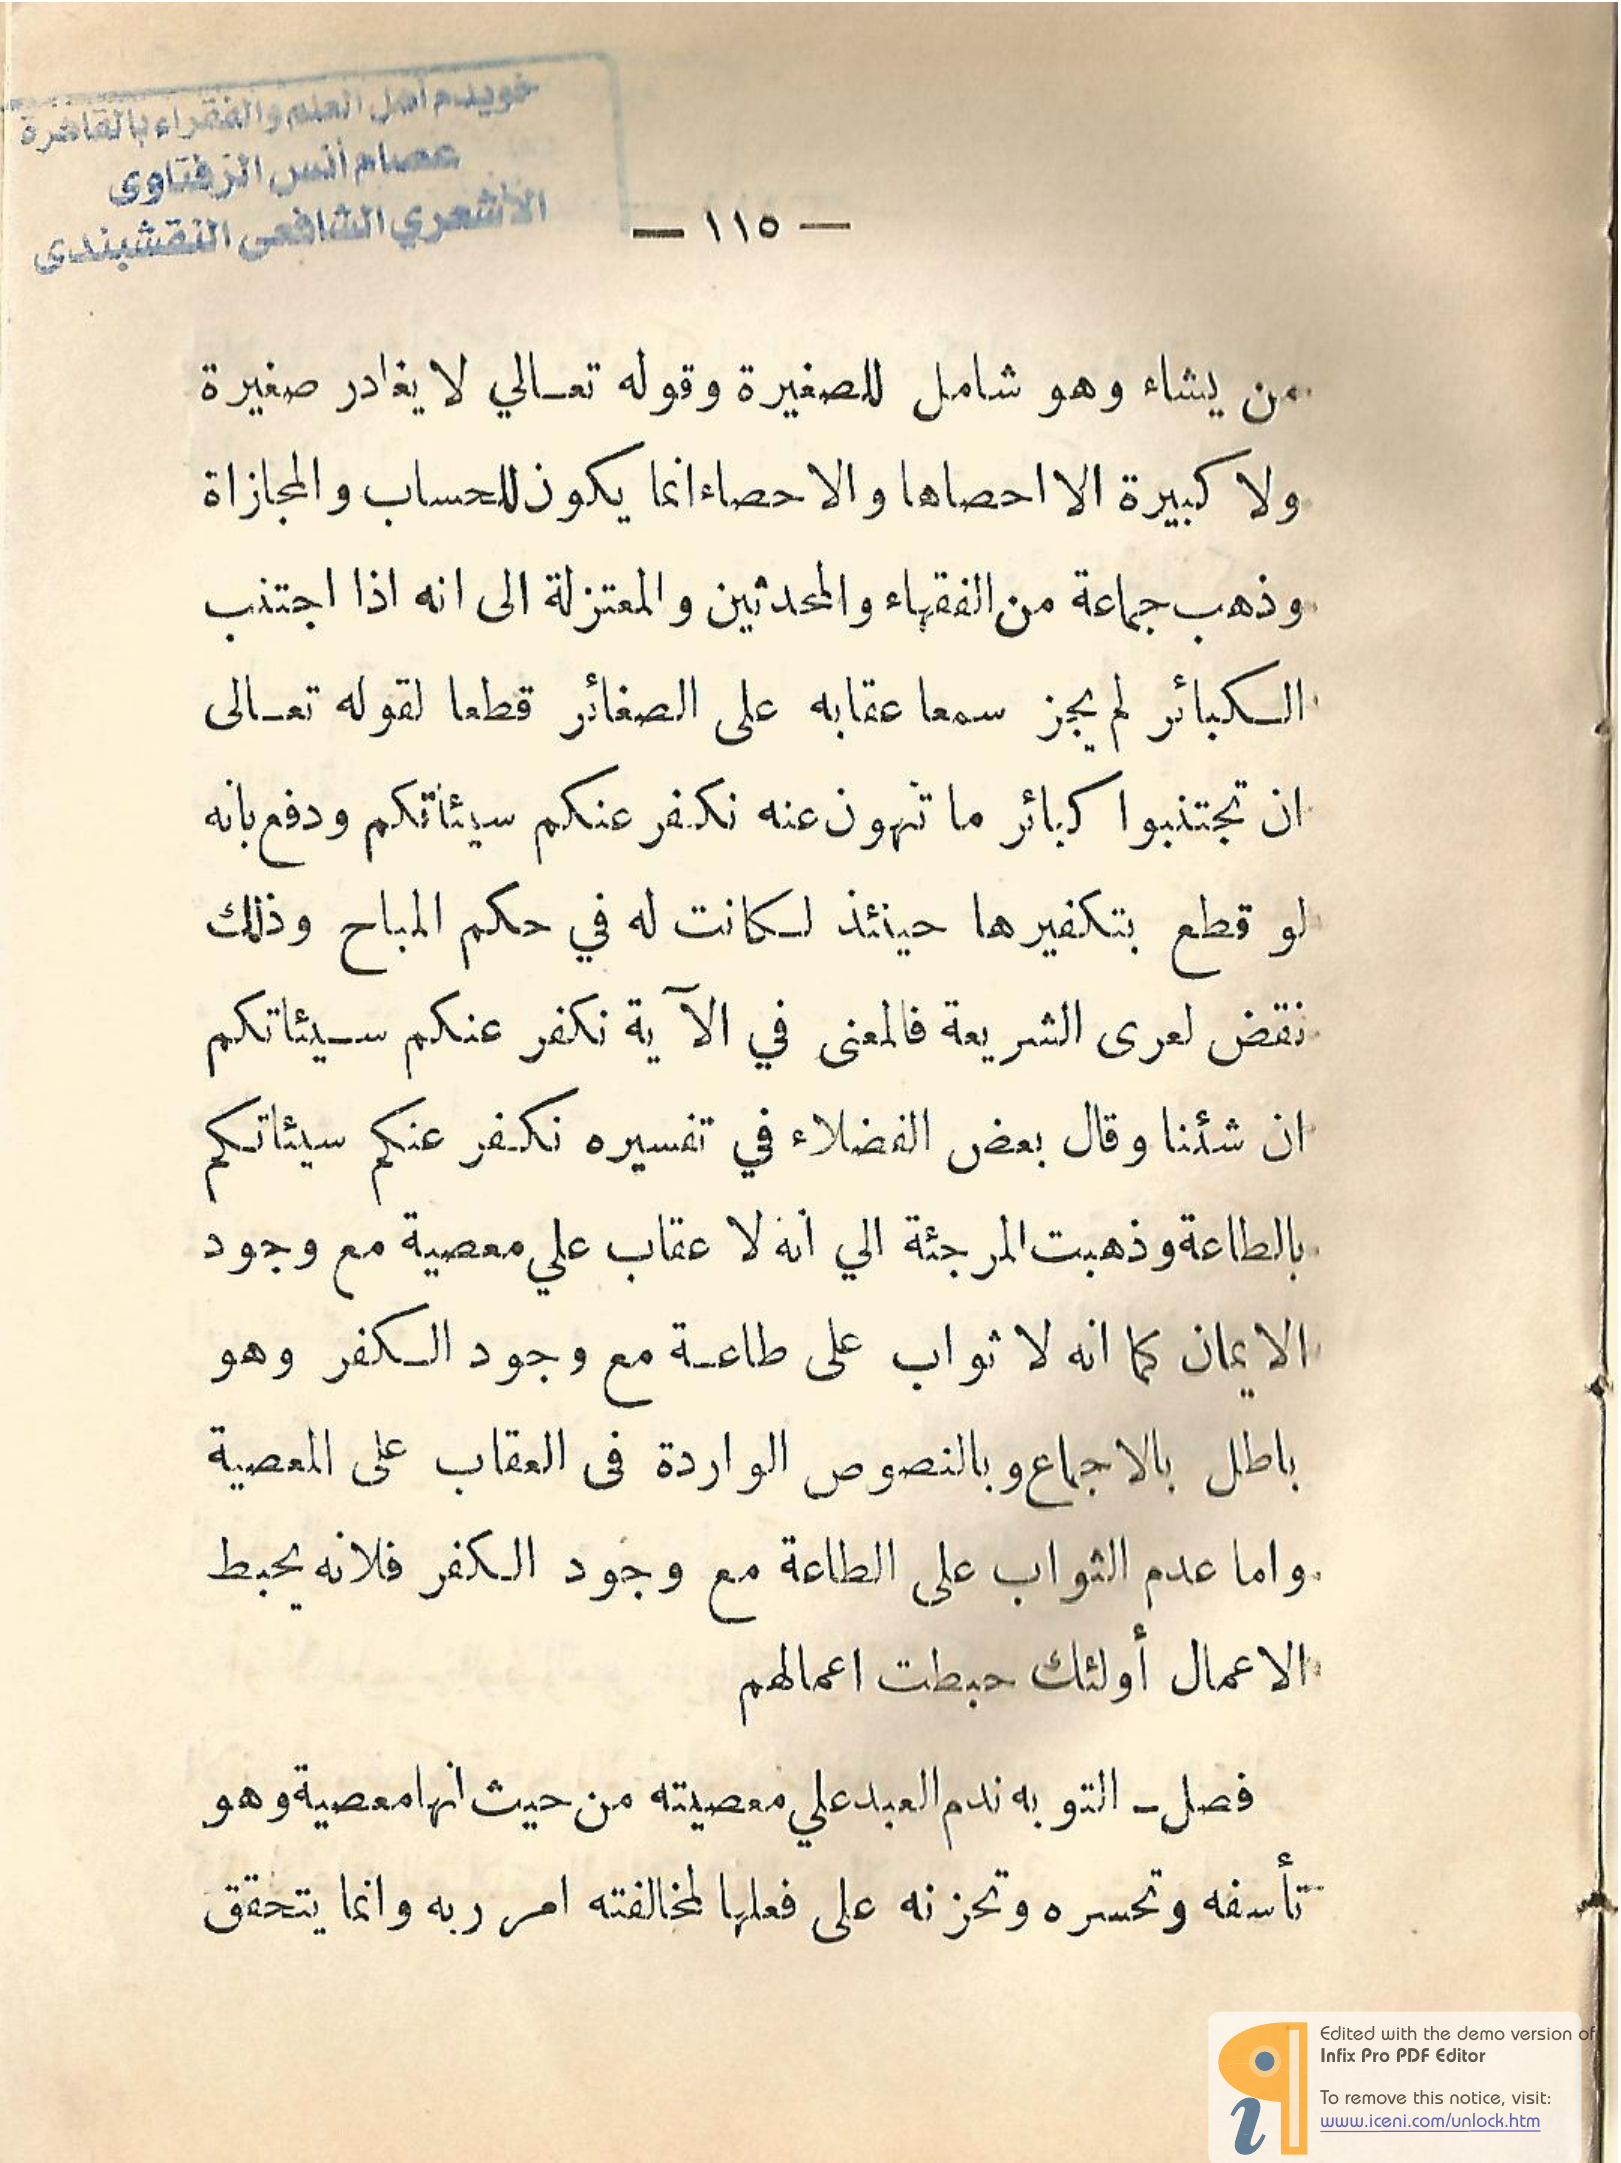 خويدم أهل العلم والفقراء بالقاهرة
عصام أنس الزفتاوى
الأشعري الشافعى النقشبندى
— ١١٥ —
من يشاء وهو شامل للصغيرة وقوله تعالي لا يغادر صغيرة
ولا كبيرة الا احصاها والاحصاء انما يكون للحساب والمجازاة
وذهب جماعة من الفقهاء والمحدثين والمعتزلة الى انه اذا اجتنب
الكبائر لم يجز سمعا عقابه على الصغائر قطعا لقوله تعالى
ان تجتنبوا كبائر ما تنهون عنه نكفر عنكم سيئاتكم ودفع بانه
لو قطع بتكفيرها حينئذ لكانت له في حكم المباح وذلك
نقض لعرى الشريعة فالمعنى في الآية نكفر عنكم سيئاتكم
ان شئنا وقال بعض الفضلاء في تفسيره نكفر عنكم سيئاتكم
بالطاعة وذهبت المرجئة الي انه لا عقاب علي معصية مع وجود
الايمان كما انه لا ثواب على طاعة مع وجود الكفر وهو
باطل بالاجماع وبالنصوص الواردة فى العقاب على المعصية
واما عدم الثواب على الطاعة مع وجود الكفر فلانه يحبط
الاعمال أولئك حبطت اعمالهم
فصل – التوبه ندم العبد علي معصيته من حيث انها معصية وهو
تأسفه وتحسره وتحزنه على فعلها لمخالفته امر ربه وانما يتحقق
Edited with the demo version of
Infix Pro PDF Editor
To remove this notice, visit:
www.iceni.com/unlock.htm